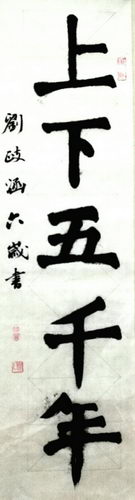 上下五千年
劉政涵六歲書